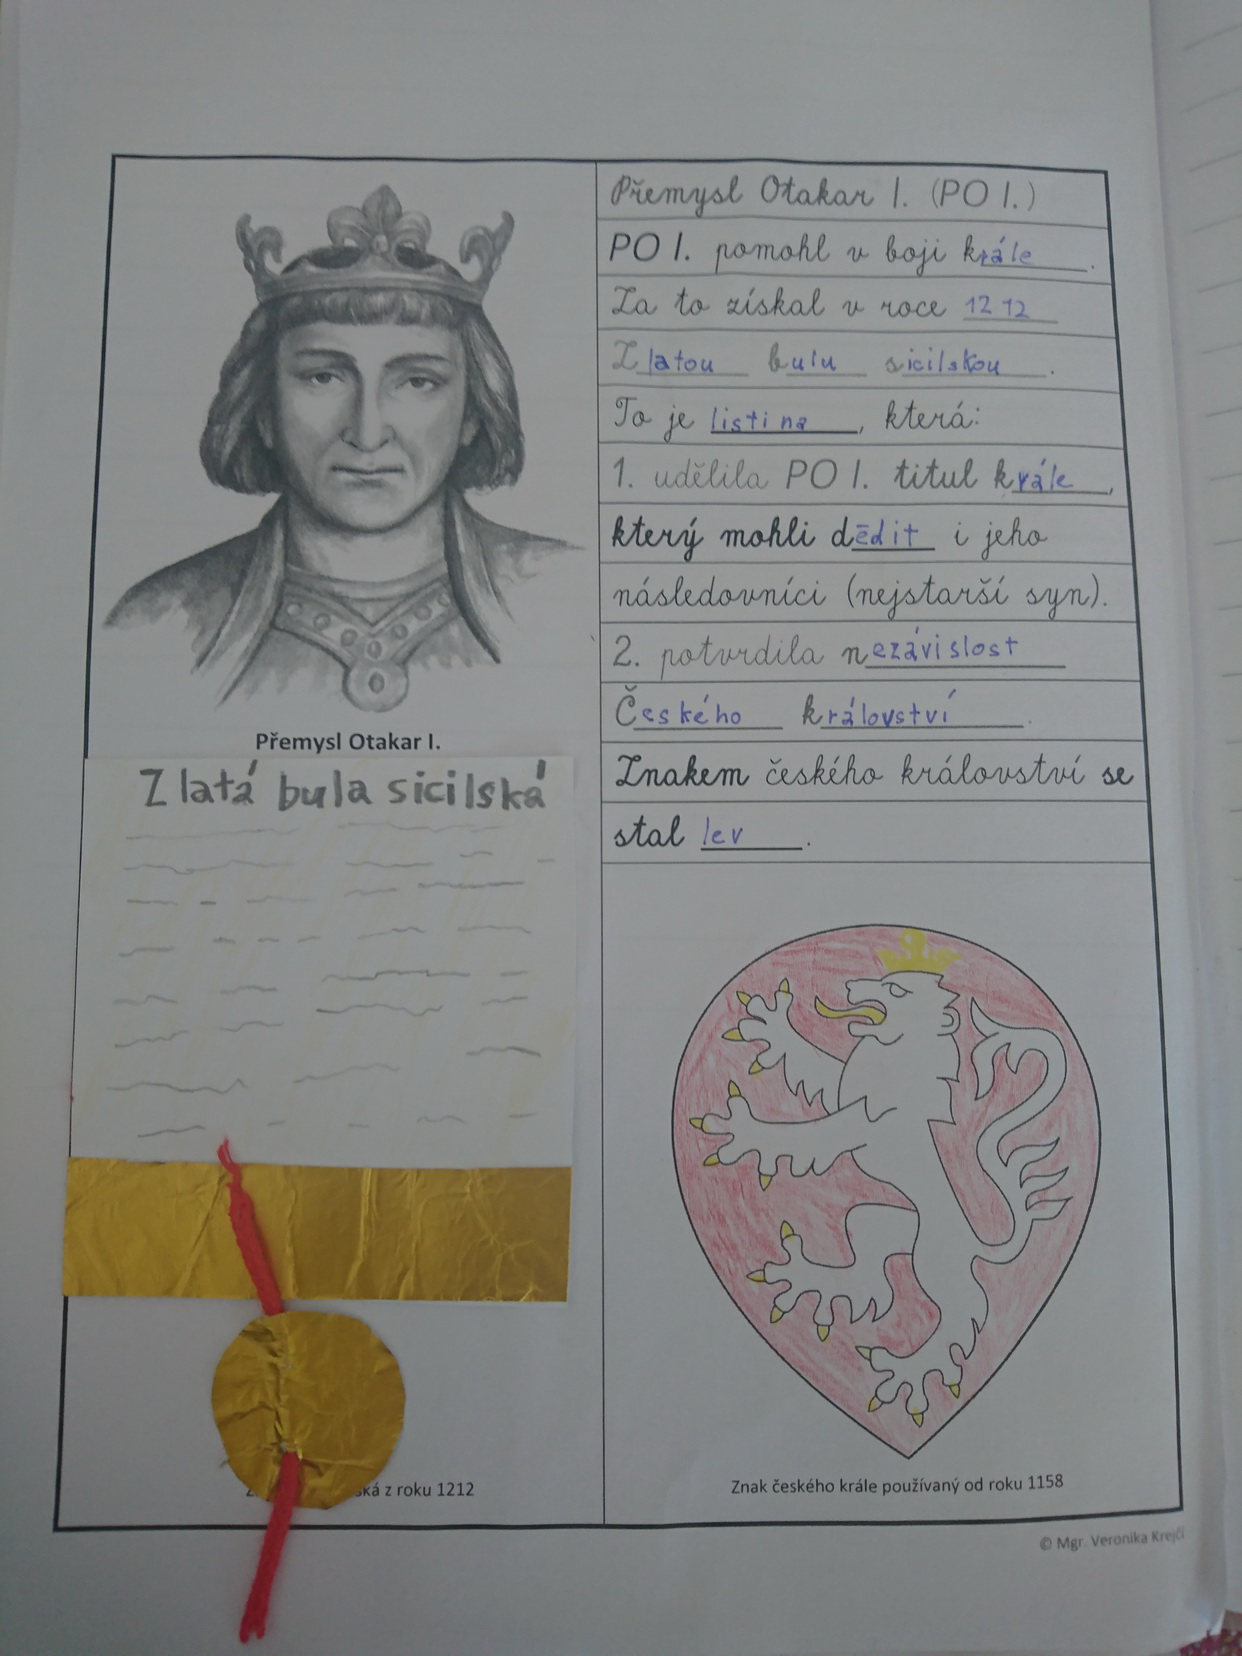 Přemysl Otakar I.
Zlatá bula sicilská
ká z roku 1212
Přemysl Otakar I. (PO I.)
PO I. pomohl v boji krále.
Za to získal v roce 1212
Zlatou bulu sicilskou.
To je listina, která:
1. udělila PO I. titul krále,
který mohli dědit i jeho
následovníci (nejstarší syn).
2. potvrdila nezávislost
Českého království.
Znakem českého království se
stal lev.
Znak českého krále používaný od roku 1158
© Mgr. Veronika Krejčí